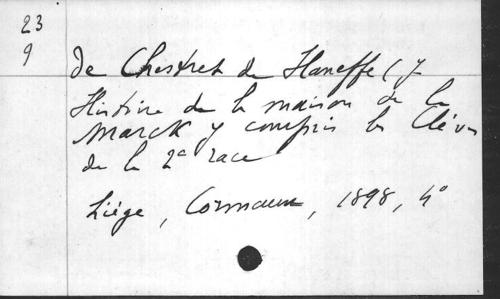 23
9
de Chestret de Haneffe (J
Histoire de la maison de la
Marck y compris les Clèves
de la 2e race
Liége, Cormaux, 1898, 4°